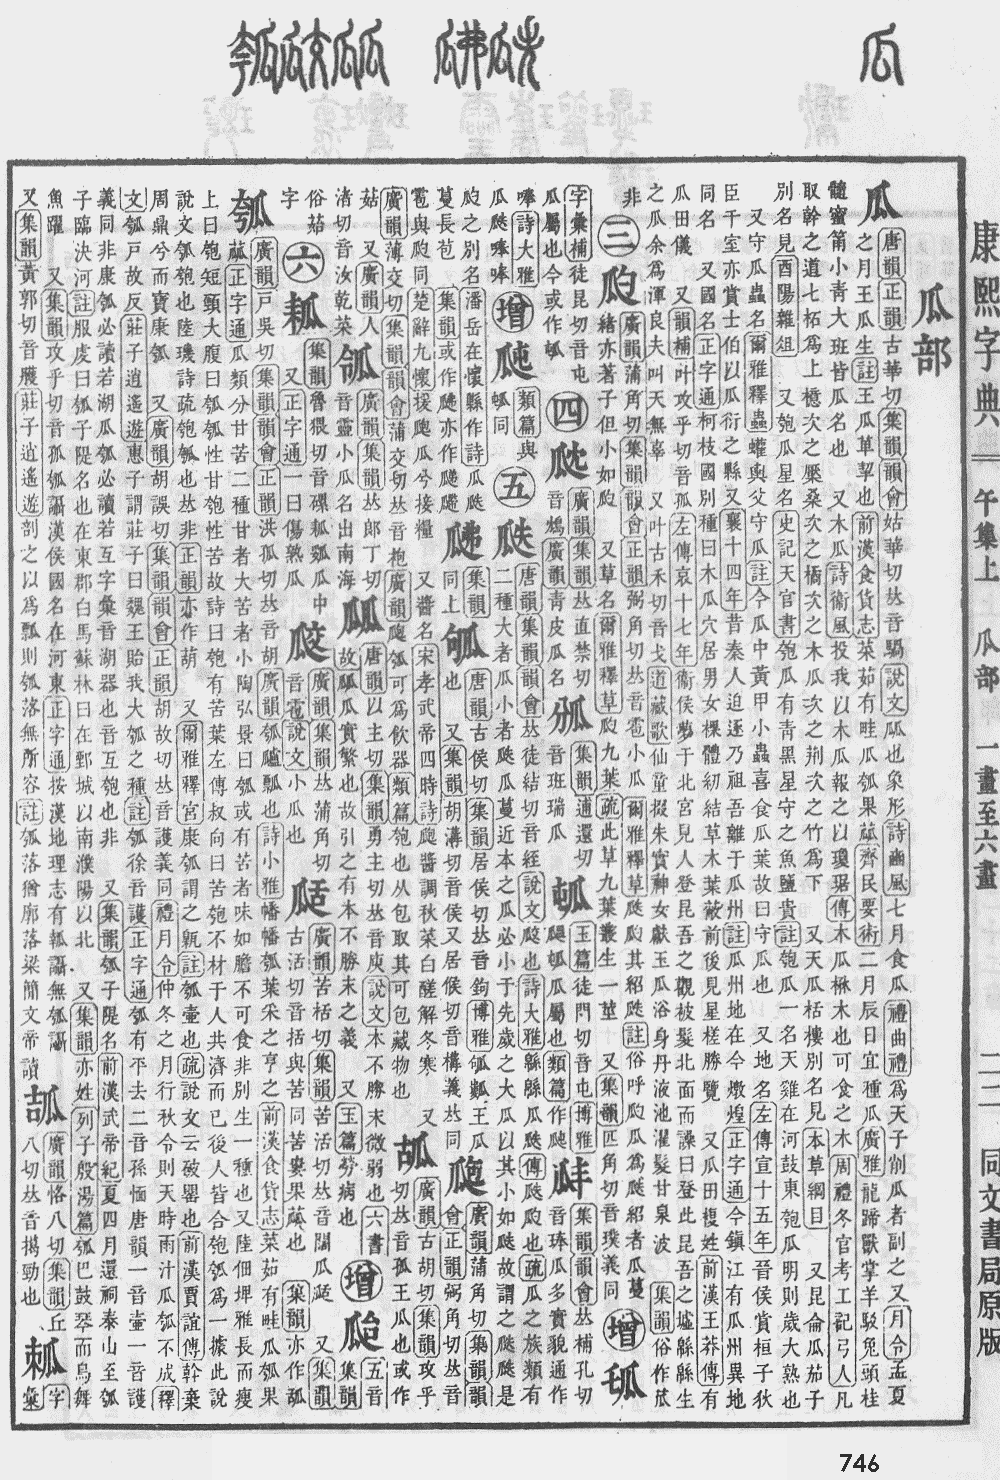 康熙字典 午集上 瓜部 一畫至六畫 二二 同文書局原版
瓜部
瓜
唐韻正韻古華切集韻韻會姑華切𠀤音騧說文㼌也象形詩豳風七月食瓜禮曲禮爲天子削瓜者副之又月令孟夏
之月王瓜生註王瓜草挈也前漢食貨志菜茹有畦瓜瓠果蓏齊民要術二月辰日宜種瓜廣雅龍蹄獸掌羊駮兔頭桂
髓蜜筩小靑大班皆瓜名也 又木瓜詩衞風投我以木瓜報之以瓊琚傳木瓜楙木也可食之木周禮冬官考工記弓人凡
取幹之道七柘爲上檍次之檿桑次之橘次之木瓜次之荆次之竹爲下 又天瓜栝樓別名見本草綱目 又昆侖瓜茄子
別名見酉陽雜俎 又匏瓜星名史記天官書匏瓜有靑黑星守之魚鹽貴註匏瓜一名天雞在河鼓東匏瓜明則歲大熟也
又守瓜蟲名爾雅釋蟲蠸輿父守瓜註今瓜中黃甲小蟲喜食瓜葉故曰守瓜也 又地名左傳宣十五年晉侯賞桓子狄
臣千室亦賞士伯以瓜衍之縣又襄十四年昔秦人迫逐乃祖吾離于瓜州註瓜州地在今燉煌正字通今鎭江有瓜州異地
同名 又國名正字通柯枝國別種曰木瓜穴居男女裸體紉結草木葉蔽前後見星槎勝覽 又瓜田複姓前漢王莽傳有
瓜田儀 又韻補叶攻乎切音孤左傳哀十七年衞侯夢于北宮見人登昆吾之觀被髮北面而譟曰登此昆吾之墟緜緜生
之瓜余爲渾良夫叫天無辜 又叶古禾切音戈道藏歌仙童掇朱實神女獻玉瓜浴身丹液池濯髮甘泉波 集韻俗作苽
非
三 瓝
廣韻蒲角切集韻韻會正韻弼角切𠀤音雹小瓜 爾雅釋草瓞瓝其紹瓞註俗呼瓝瓜爲瓞紹者瓜蔓
緒亦著子但小如瓝 又草名爾雅釋草瓝九葉疏此草九葉叢生一莖 又集韻匹角切音璞義同
增
字彙補徒昆切音屯
瓜屬也今或作
四
廣韻集韻𠀤直禁切
音鴆廣韻靑皮瓜名
集韻逋還切
音班瑞瓜
玉篇徒門切音屯博雅
瓜屬也類篇作
集韻韻會𠀤補孔切
音琫瓜多實貌通作
唪詩大雅
瓜瓞唪唪
增
類篇與
同
五 瓞
唐韻集韻韻會𠀤徒結切音絰說文㼎也詩大雅緜緜瓜瓞傳瓞瓝也疏瓜之族類有
二種大者瓜小者瓞瓜蔓近本之瓜必小于先歲之大瓜以其小如瓞故謂之瓞瓞是
瓝之別名潘岳在懷縣作詩瓜瓞
蔓長苞 集韻或作
集韻
同上
唐韻古侯切集韻居侯切𠀤音鉤博雅
王瓜
也 又集韻胡溝切音侯又居候切音構義𠀤同
廣韻蒲角切集韻韻
會正韻弼角切𠀤音
雹與瓝同楚辭九懷援瓟瓜兮接糧 又醬名宋孝武帝四時詩瓟醬調秋菜白醝解冬寒 又
廣韻薄交切集韻韻會蒲交切𠀤音枹廣韻瓟瓠可爲飮器類篇匏也从包取其可包藏物也
𤬪
廣韻古胡切集韻攻乎
切𠀤音孤王瓜也或作
菇 又廣韻人
渚切音汝乾菜
瓴
廣韻集韻𠀤郎丁切
音靈小瓜名出南海
㼌
唐韻以主切集韻勇主切𠀤音庾說文本不勝末微弱也六書
故㼌瓜實繁也故引之有本不勝末之義 又玉篇勞病也
增
集韻
五音
俗菇
字
六
集韻魯猥切音磥瓤瓜中
又正字通一曰傷熟瓜
㼎
廣韻集韻𠀤蒲角切
音雹說文小瓜也
廣韻苦栝切集韻苦活切𠀤音闊瓜 又集韻
古活切音括與苦同苦蔞果蓏也 集韻亦作
瓠
廣韻戸吳切集韻韻會正韻洪孤切𠀤音胡廣韻瓠𤬛瓢也詩小雅幡幡瓠葉采之亨之前漢食貨志菜茹有畦瓜瓠果
蓏正字通瓜類分甘苦二種甘者大苦者小陶弘景曰瓠或有苦者味如膽不可食非別生一種也又陸佃埤雅長而瘦
上曰匏短頸大腹曰瓠瓠性甘匏性苦故詩曰匏有苦葉左傳叔向曰苦匏不材于人共濟而已後人皆合匏瓠爲一據此說
說文瓠匏也陸璣詩疏匏瓠也𠀤非正韻亦作葫 又爾雅釋宮康瓠謂之甈註瓠壷也疏說文云破罌也前漢賈誼傳斡棄
周鼎兮而寶康瓠 又廣韻胡誤切集韻韻會正韻胡故切𠀤音護義同禮月令仲冬之月行秋令則天時雨汁瓜瓠不成釋
文瓠戸故反莊子逍遙遊惠子謂莊子曰魏王貽我大瓠之種註瓠徐音護正字通瓠有平去二音孫愐唐韻一音壷一音護
義同非康瓠必讀若湖瓜瓠必讀若互字彙音湖器也音互匏也非 又集韻瓠子隄名前漢武帝紀夏四月還祠泰山至瓠
子臨決河註服虔曰瓠子隄名也在東郡白馬蘇林曰在鄄城以南濮陽以北 又集韻亦姓列子殷湯篇瓠巴鼓琴而鳥舞
魚躍 又集韻攻乎切音孤瓠讘漢侯國名在河東正字通按漢地理志有瓡讘無瓠讘
又集韻黃郭切音臒莊子逍遙遊剖之以爲瓢則瓠落無所容註瓠落猶廓落梁簡文帝讀
廣韻恪八切集韻丘
八切𠀤音揭勁也
字
彙
746